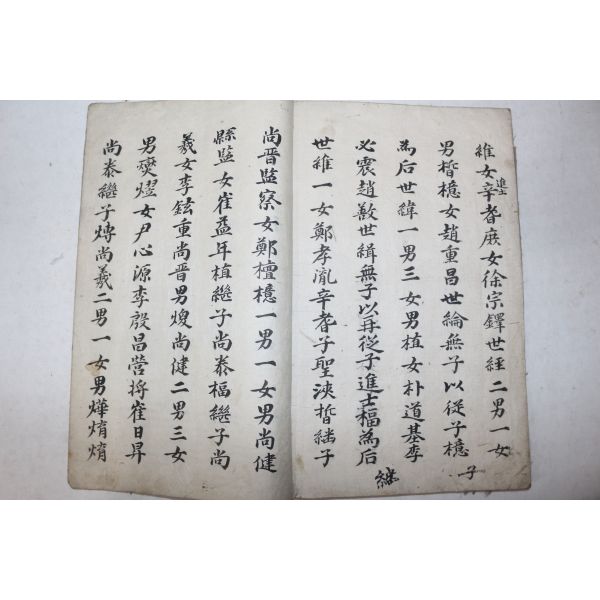 維女辛耆庶女徐宗鐸世經二男一女
進士
男晳檍女趙重昌世綸無子以從子檍
子
為后世緯一男三女男植女朴道基李
必震趙歚世緝無子以再從子進士楅為后
繼
世維一女鄭孝胤辛耆子聖浹晳繼子
尚晋監察女鄭檀檍一男一女男尚健
縣監女崔益年植繼子尚泰楅繼子尚
羲女李鉉重尚晋男焌尚健二男三女
男燮熠女尹心源李殷昌營将崔日昇
尚泰繼子煿尚羲二男一女男燁焴焴